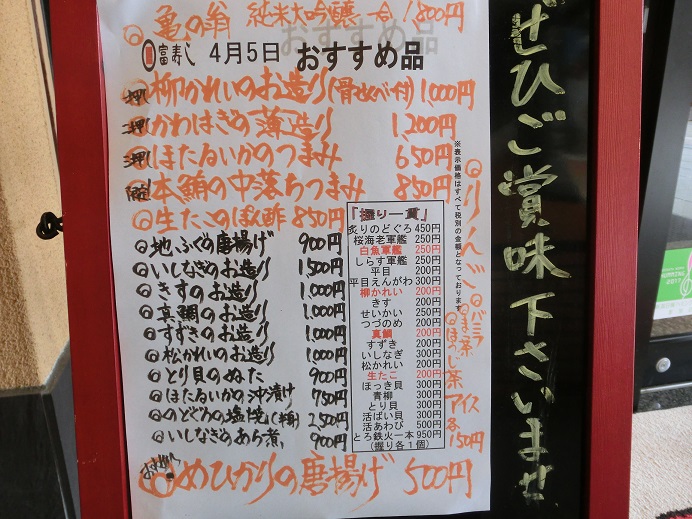 ◎亀の翁 純米大吟醸 一合 1,800円
富寿し 4月5日 おすすめ品
押 柳かれいのお造り(骨せんべい付) 1,000円
押 かわはぎの薄造り 1,200円
押 ほたるいかのつまみ 650円
本鮪の中落ちつまみ 850円
◎生たこのぽん酢 850円
◎地ふぐの唐揚げ 900円
◎いしなぎのお造り 1,500円
◎きすのお造り 1,000円
◎真鯛のお造り 1,000円
◎すずきのお造り 1,000円
◎松かれいのお造り 1,000円
◎とり貝のぬた 900円
◎ほたるいかの沖漬け 750円
◎のどぐろの塩焼(半身) 2,500円
◎いしなぎのあら煮 900円
◎めひかりの唐揚げ 500円
『握り一貫』
炙りのどぐろ 450円
桜海老軍艦 250円
白魚軍艦 250円
しらす軍艦 250円
平目 200円
平目えんがわ 300円
柳かれい 200円
きす 200円
せいかい 250円
つづのめ 200円
真鯛 200円
すずき 200円
いしなぎ 300円
松かれい 200円
生たこ 200円
ほっき貝 300円
青柳 300円
とり貝 300円
活ばい貝 300円
活あわび 500円
とろ鉄火一本 950円
(握り各1個)
※表示価格はすべて税別の金額となっております
◎りんご
◎バニラ
◎抹茶
◎ほうじ茶
アイス
各150円
ぜひご賞味下さいませ